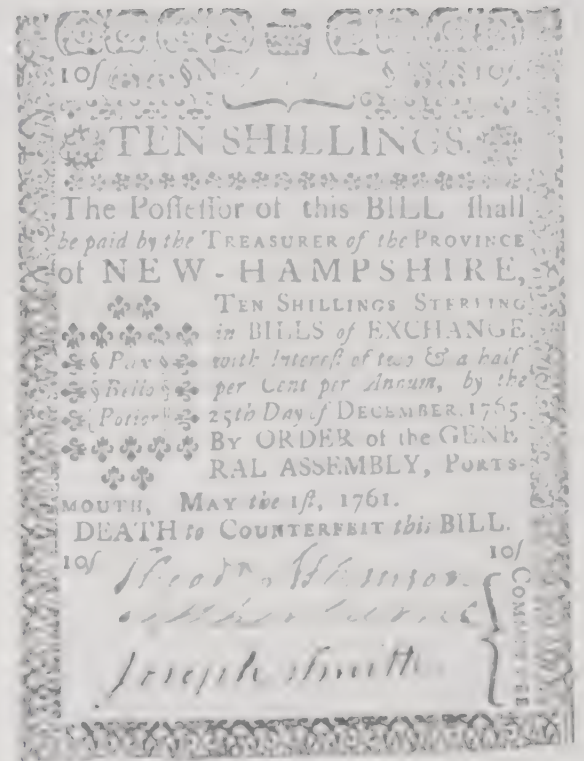 10ſ N 10ſ
TEN SHILLINGS.
The Poſſeſſor of this BILL ſhall
be paid by the TREASURER of the PROVINCE
of NEW-HAMPSHIRE,
TEN SHILLINGS STERLING
in BILLS of EXCHANGE
with Intereſt of two & a half
per Cent per Annum, by the
25th Day of DECEMBER. 1765.
Pax
Bello
Potior
By ORDER of the GENE
RAL ASSEMBLY, PORTS-
MOUTH, MAY the 1ſt, 1761.
DEATH to COUNTERFEIT this BILL.
10ſ 10ſ
Joseph Smith
COMMITTEE